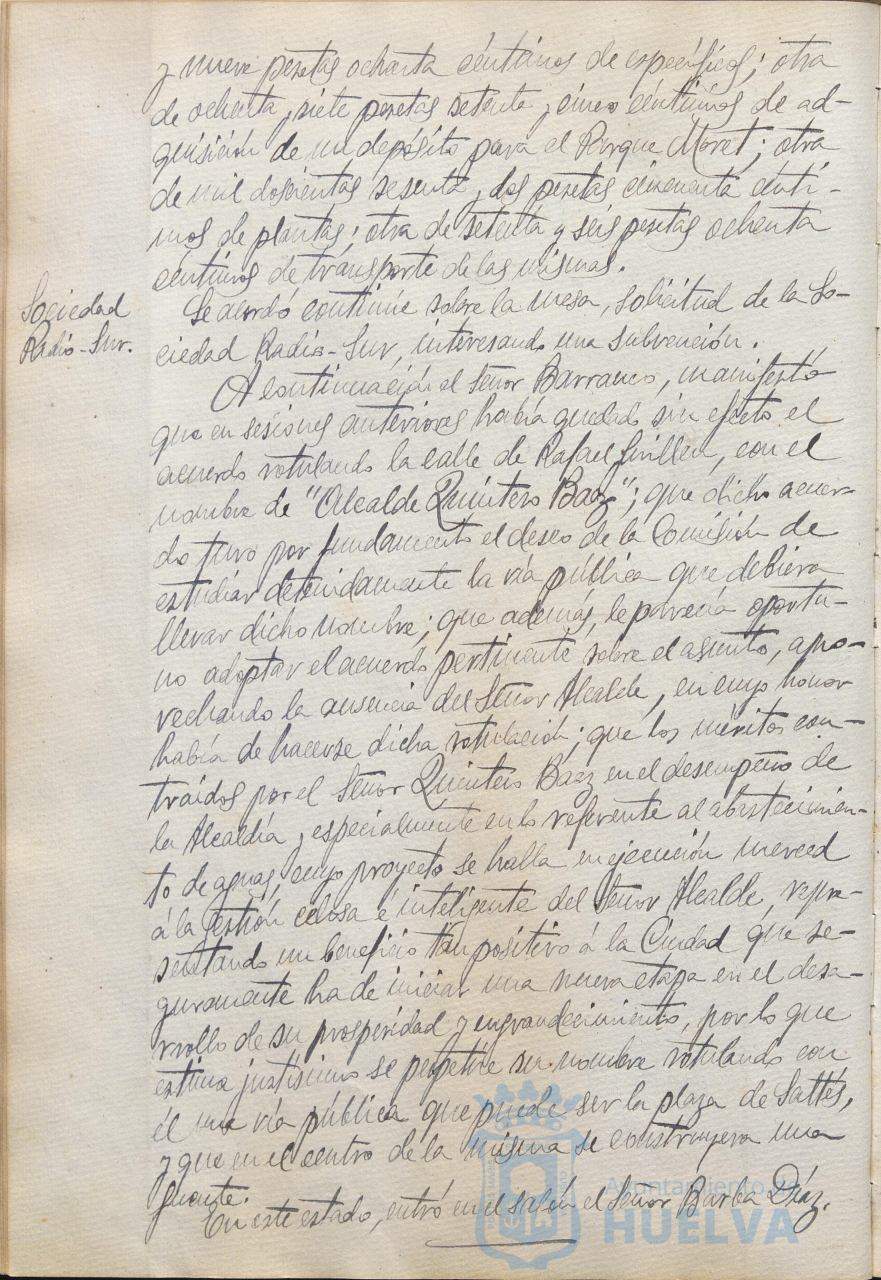 y nueve pesetas ochenta céntimos de específicos; otra
de ochenta y siete pesetas setenta y cinco céntimos de ad-
quisición de un depósito para el Parque Moret; otra
de mil doscientas sesenta y dos pesetas cincuenta cénti-
mos de plantas; otra de setenta y seis pesetas ochenta
céntimos de transporte de las mismas.
Sociedad
Radio-Sur.
Se acordó continúe sobre la mesa, solicitud de la So-
ciedad Radio-Sur, interesando una subvención.
A continuación el Señor Barranco, manifestó
que en sesiones anteriores había quedado sin efecto el
acuerdo rotulando la calle de Rafael Guillen, con el
nombre de "Alcalde Quintero Báez"; que dicho acuer-
do tuvo por fundamento el deseo de la Comisión de
estudiar detenidamente la vía pública que debiera
llevar dicho nombre; que además, le parecía oportu-
no adoptar el acuerdo pertinente sobre el asunto, apro-
vechando la ausencia del Señor Alcalde, en cuyo honor
había de hacerse dicha rotulación; que los méritos con-
traídos por el Señor Quintero Báez en el desempeño de
la Alcaldía y especialmente en lo referente al abastecimien-
to de aguas, cuyo proyecto se halla en ejecución merced
á la gestión celosa é inteligente del Señor Alcalde, repre-
sentando un beneficio tan positivo á la Ciudad que se-
guramente ha de iniciar una nueva etapa en el desa-
rrollo de su prosperidad y engrandecimiento, por lo que
estima justísimo se perpetúe su nombre rotulando con
él una vía pública que puede ser la plaza de Saltés,
y que en el centro de la misma se construyera una
fuente.
En este estado, entró en el salón el Señor Barba Díaz.
Ayuntamiento de
HUELVA